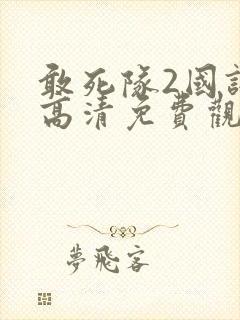 敢死隊2國
高清免費觀
夢飛客